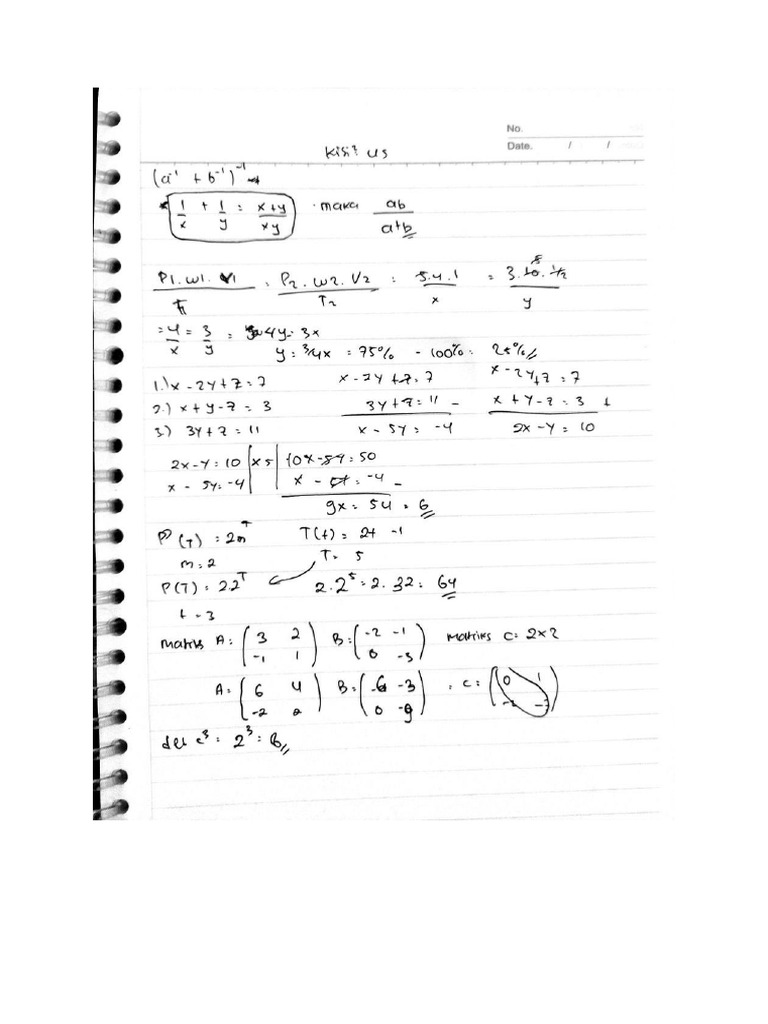 No.
Date. / /
Kisi² US
(a⁻¹ + b⁻¹)⁻¹ →
* 1/x + 1/y = x+y/xy · maka ab/a+b
P1.W1.V1/T1 = P2.W2.V2/T2 = 5.4.1/x = 3.10.1/2/y
= 4/x = 3/y = 4y = 3x
y = 3/4x = 75% - 100% = 25%
1.) x - 2y + z = 7 x - 2y + z = 7 x - 2y + z = 7
2.) x + y - z = 3 3y + z = 11 - x + y - z = 3 +
3) 3y + z = 11 x - 5y = -4 2x - y = 10
2x - y = 10 | x 5 | 10x - 5y = 50
x - 5y = -4 | | x - 5y = -4 -
9x = 54 = 6
P(T) = 2mᵀ T(t) = 2t - 1
m = 2 T = 5
P(T) = 2.2ᵀ 2.2⁵ = 2.32 = 64
t = 3
Matriks A = (3 2 B = (-2 -1 Matriks C = 2x2
-1 1) 0 -3)
A = (6 4 B = (-6 -3 = C = (0 1
-2 2) 0 -9) -2 -7)
det C³ = 2³ = 8